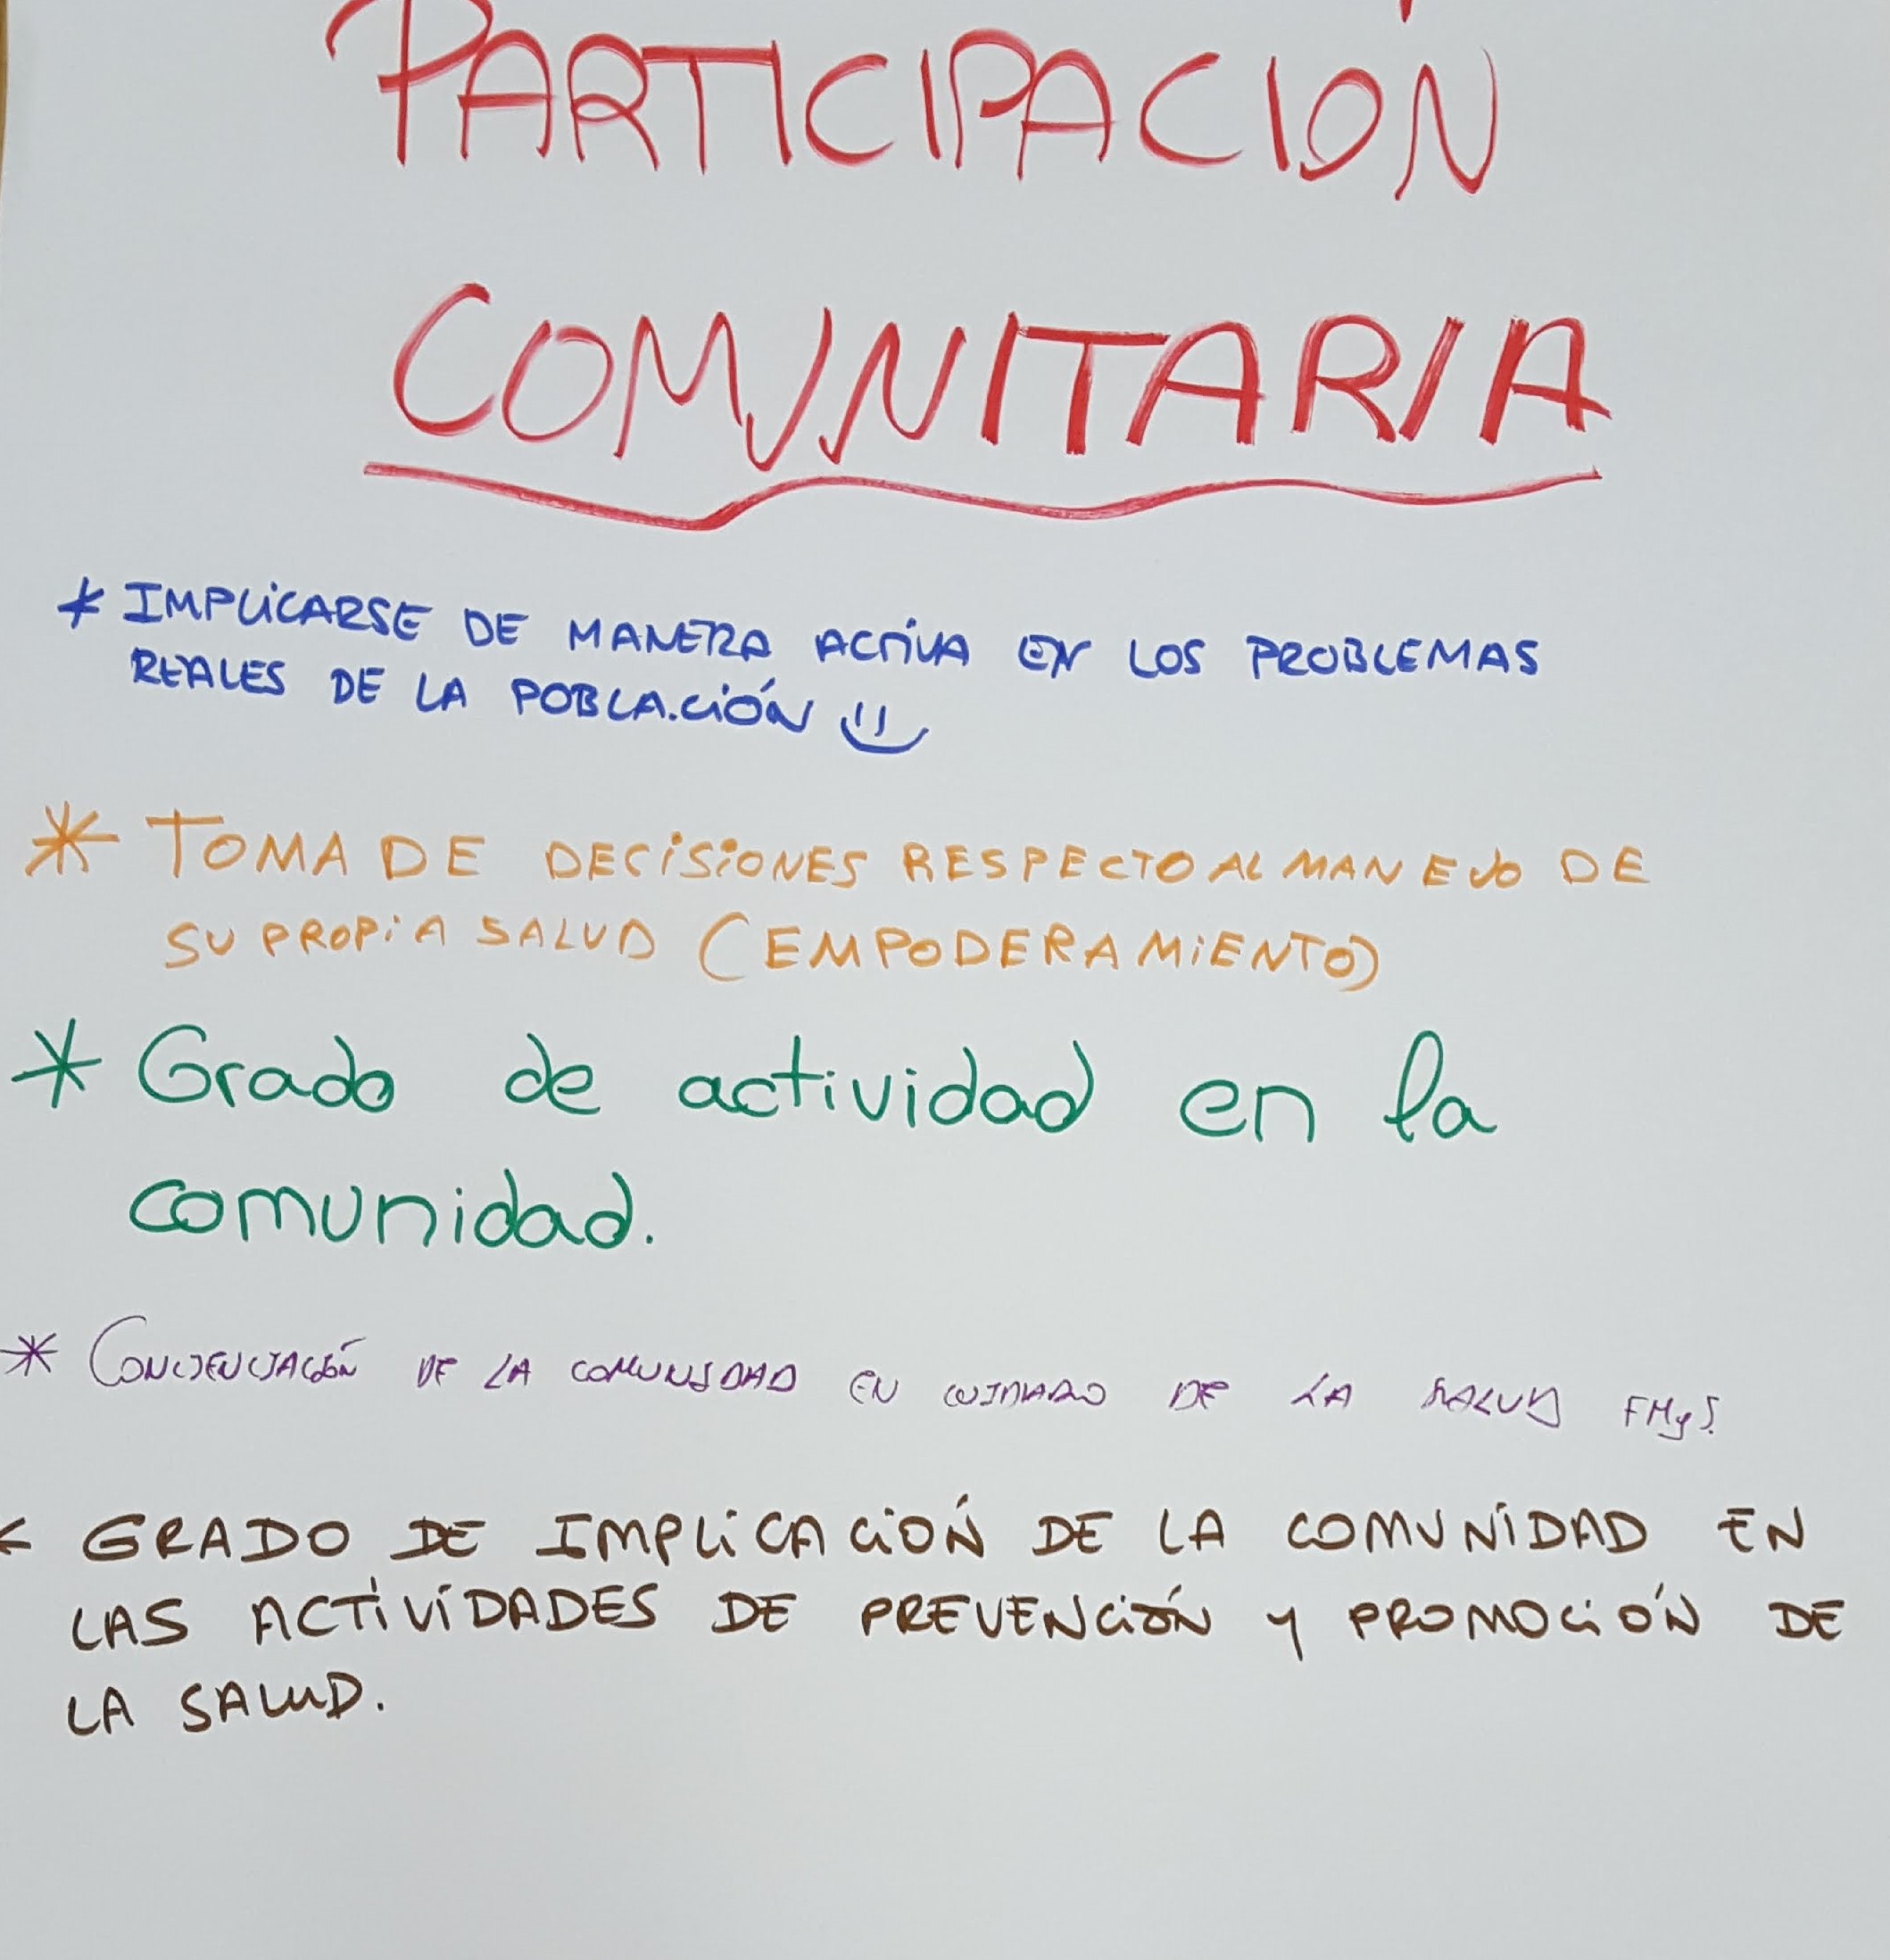 PARTICIPACIÓN
COMUNITARIA
* IMPLICARSE DE MANERA ACTIVA EN LOS PROBLEMAS
REALES DE LA POBLACIÓN
* TOMA DE DECISIONES RESPECTO AL MANEJO DE
SU PROPIA SALUD (EMPODERAMIENTO)
* Grado de actividad en la
comunidad.
* CONCIENCIACIÓN DE LA COMUNIDAD EN CUIDADO DE LA SALUD
* GRADO DE IMPLICACIÓN DE LA COMUNIDAD EN
LAS ACTIVIDADES DE PREVENCIÓN Y PROMOCIÓN DE
LA SALUD.